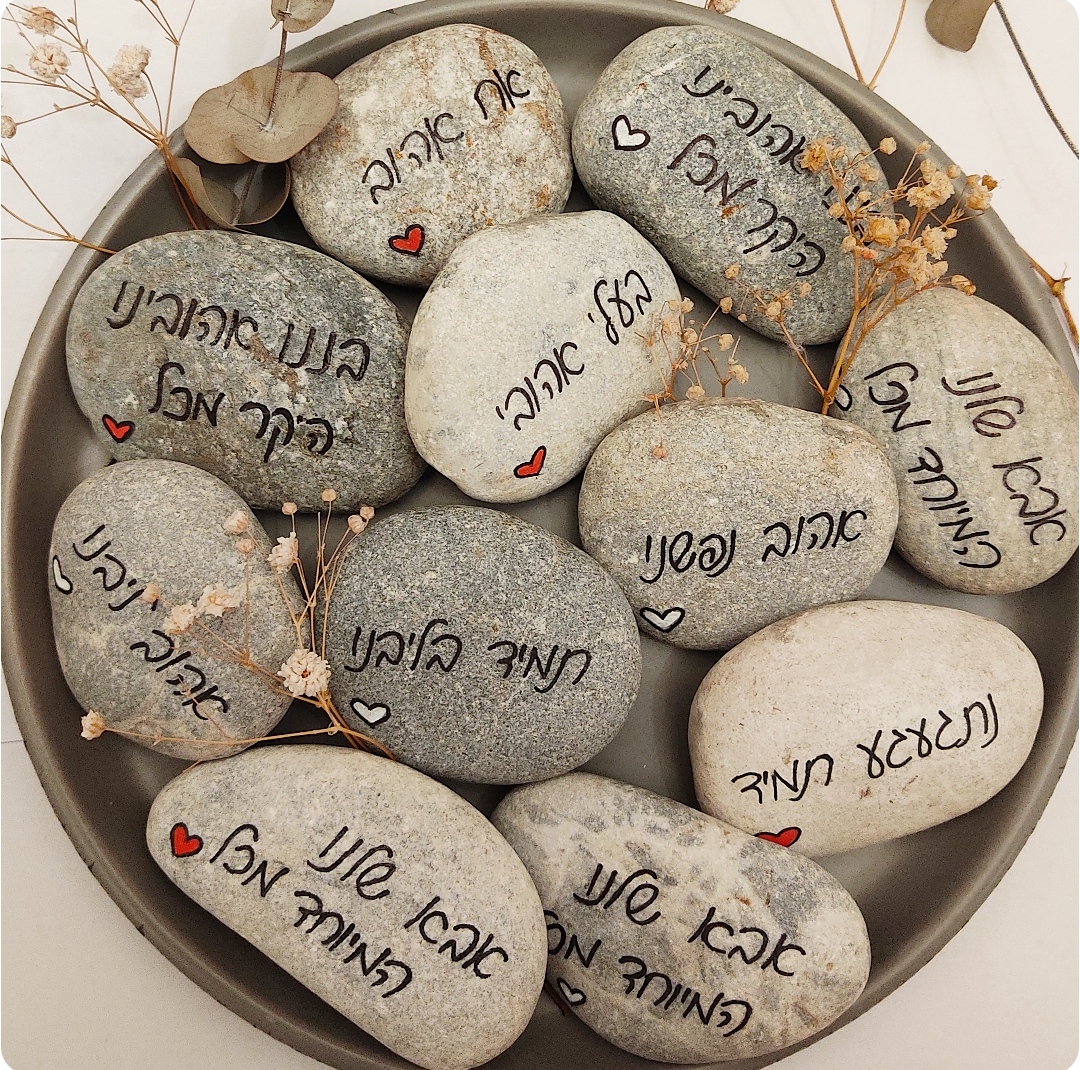 אח אהוב
אהובינו
היקר מכל
בננו אהובינו
היקר מכל
בעלי אהובי
אבא שלנו
המיוחד מכל
אהוב נפשני
אהוב
תמיד בליבנו
נתגעגע תמיד
אבא שלנו
המיוחד מכל
אבא שלנו
המיוחד